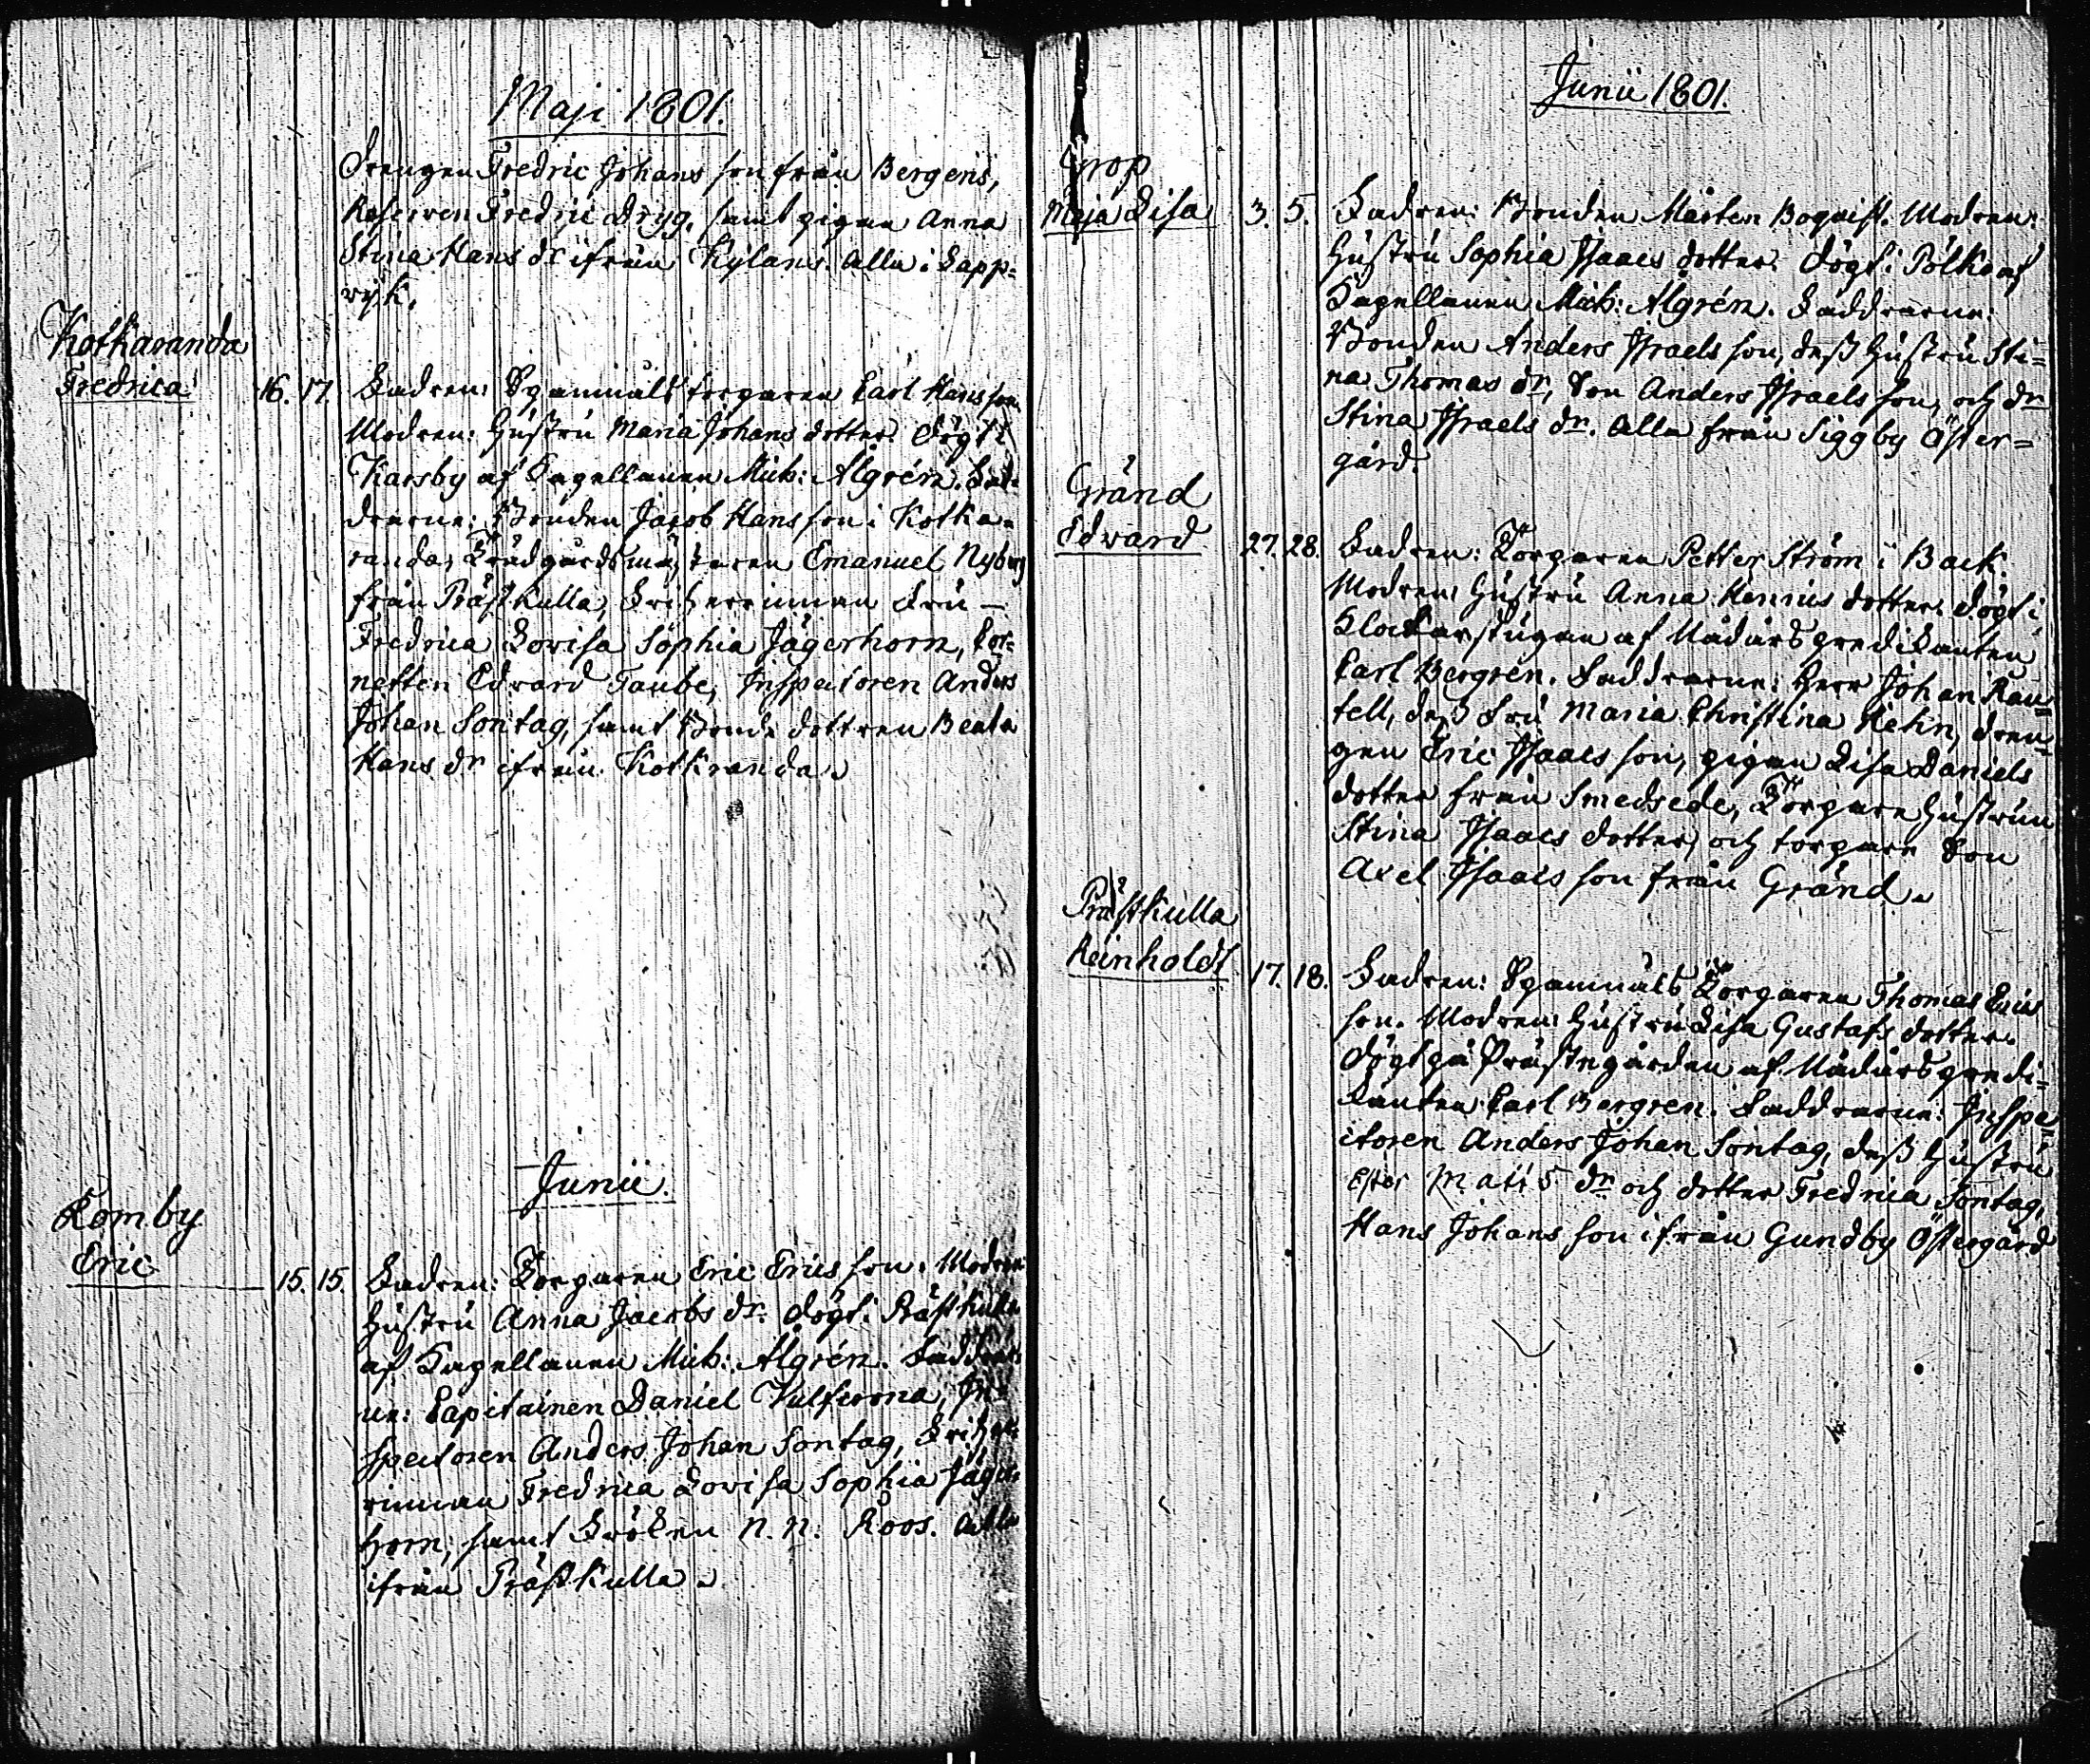 Maji 1801.
Drengen Fredric Johans son från Bergens,
Reserven Fredric Dryg, samt pigan Anna
Stina Hans dr ifrån Kylans. Alla i Lapp=
vik.
Kotkaranda
Fredrica 16. 17. Fadren: Spanmåls torparen Carl Hans son
Modren: Hustru Maria Johans dotter. Dögt i
Karsby af Capellanen Mich: Algrén. Fad=
drarne: Bonden Jacob Hans son i Kotka=
randa, Trädgårdsmästaren Emanuel Nyberg
från Prästkulla, Friherrinnan Fru
Fredrica Lovisa Sophia Jägerhorn, Cor=
netten Edvard Taube, Inspectoren Anders
Johan Sontag, samt Bonde dottren Beata
Hans dr ifrån Kotkranda.
Junii.
Tomby
Eric 15. 15. Fadren: Torparen Eric Erics son. Modren
Hustru Anna Jacobs dr. Dögt i Prästkulla
af Capellanen Mich: Algrén. Faddrar=
ne: Capitainen Daniel Vulfcrona, In=
spectoren Anders Johan Sontag, Friher=
rinnan Fredrica Lovisa Sophia Jäger=
horn, samt Fröken N. N. Roos. Alla
ifrån Prästkulla.
Junii 1801.
Grop
Maja Lisa 3. 5. Fadren: Bonden Mårten Boqvist. Modren:
Hustru Sophia Isaacs dotter. Dögt i Pölko af
Capellanen Mich: Algrén. Faddrarne:
Bonden Anders Israels son, dess Hustru Sti=
na Thomas dr, Son Anders Israels son, och dr
Stina Israels dr. Alla från Siggby Öster=
gård.
Gränd
Edvard 27. 28. Fadren: Torparen Petter Ström i Back.
Modren: Hustru Anna Henrics dotter. Dögt i
Klockarstugan af Nådårs predikanten
Carl Bergren. Faddrarne: Herr Johan Kan=
tell, dess Fru Maria Christina Hehn, dren=
gen Eric Isaacs son, pigan Lisa Daniels
dotter från Smedsede, Torpare Hustrun
Stina Isaacs dotter, och torpare Son
Axel Isaacs son från Gränd.
Prästkulla
Reinholdt 17. 18. Fadren: Spanmåls Torparen Thomas Erics
son. Modren: Hustru Lisa Gustafs dotter.
Dögt på Prästegården af Nådårs predi=
kanten Carl Bergren. Faddrarne: Inspe=
ctoren Anders Johan Sontag, dess Hustru
Ester Mats dr och dotter Fredrica Sontag,
Hans Johans son ifrån Gundby Östergård